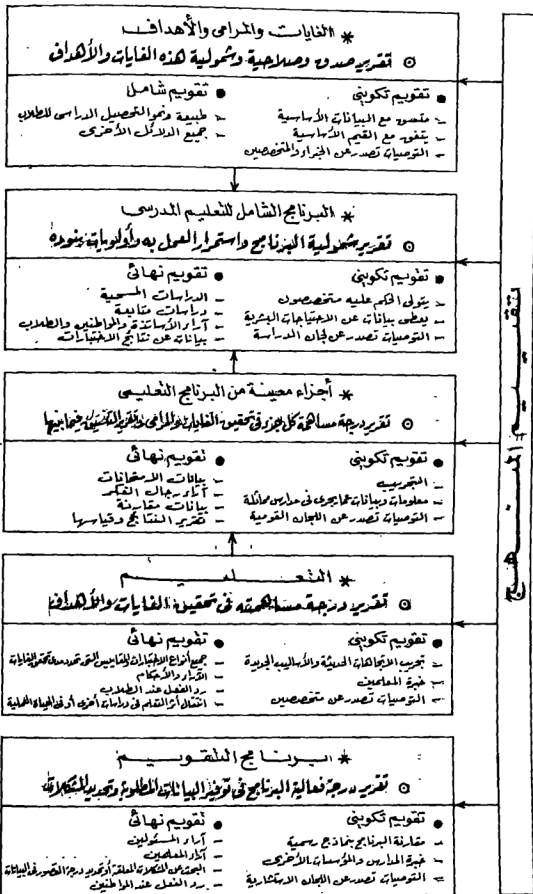 * الغايات والمرامى والأهداف
⊙ تقرير صدق وصلاحية وشمولية هذه الغايات والأهداف
● تقويم تكوينى
- متسق مع البيانات الأساسية
- يتفق مع القيم الأساسية
- التوصيات تصدر عن الخبراء والمتخصصين
● تقويم شامل
- طبيعة ونمو التحصيل الدراسى للطلاب
- جميع الدلائل الأخرى
* البرنامج الشامل للتعليم المدرسى
⊙ تقرير شمولية البرنامج واستمرار العمل به وأولويات بنوده
● تقويم تكوينى
- يتولى الحكم عليه متخصصون
- يعطى بيانات عن الاحتياجات البشرية
- التوصيات تصدر عن لجان الدراسة
● تقويم نهائى
- الدراسات المسحية
- دراسات متابعة
- آراء الأساتذة والمواطنين والطلاب
- بيانات عن نتائج الاختبارات
* أجزاء معينة من البرنامج التعليمى
⊙ تقرير درجة مساهمة كل جزء فى تحقيق الغايات والمرامى وتقرير التنسيق فيما بينها
● تقويم تكوينى
- التجريب
- معلومات وبيانات عما يجرى فى مدارس مماثلة
- التوصيات تصدر عن اللجان القومية
● تقويم نهائى
- بيانات الامتحانات
- آراء رجال الفكر
- بيانات مقارنة
- تقرير النتائج وقياسها
* التعليم
⊙ تقرير درجة مساهمته فى تحقيق الغايات والأهداف
● تقويم تكوينى
- تجريب الاتجاهات الحديثة والأساليب الجديدة
- خبرة المعلمين
- التوصيات تصدر عن متخصصين
● تقويم نهائى
- جميع أنواع الاختبارات والمقاييس التى تحدد مدى تحقق الغايات
- الآراء والأحكام
- رد الفعل عند الطلاب
- انتقال أثر التعلم فى دراسات أخرى أو فى الحياة العملية
* برنامج التقويم
⊙ تقرير درجة فعالية البرنامج فى توفير البيانات المطلوبة وتحديد المشكلات
● تقويم تكوينى
- مقارنة البرنامج بنماذج رسمية
- خبرة المدارس والمؤسسات الأخرى
- التوصيات تصدر عن اللجان الاستشارية
● تقويم نهائى
- آراء المسئولين
- آراء المعلمين
- البحث عن المشكلات المعلقة أو تحديد درجة القصور فى البيانات
- رد الفعل عند المواطنين
تقييم المنهج